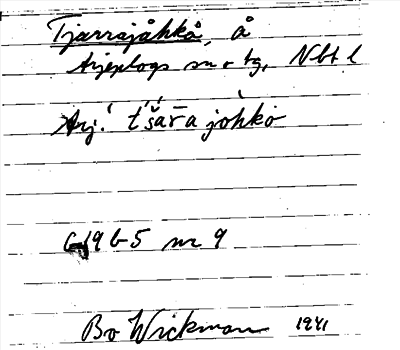 Tjarrajåhkå, å
Arjeplogs sn o tg, Nbt l
Arj. t'šār̄a johko
G 19 b-5 nr 9
Bo Wickman 1941